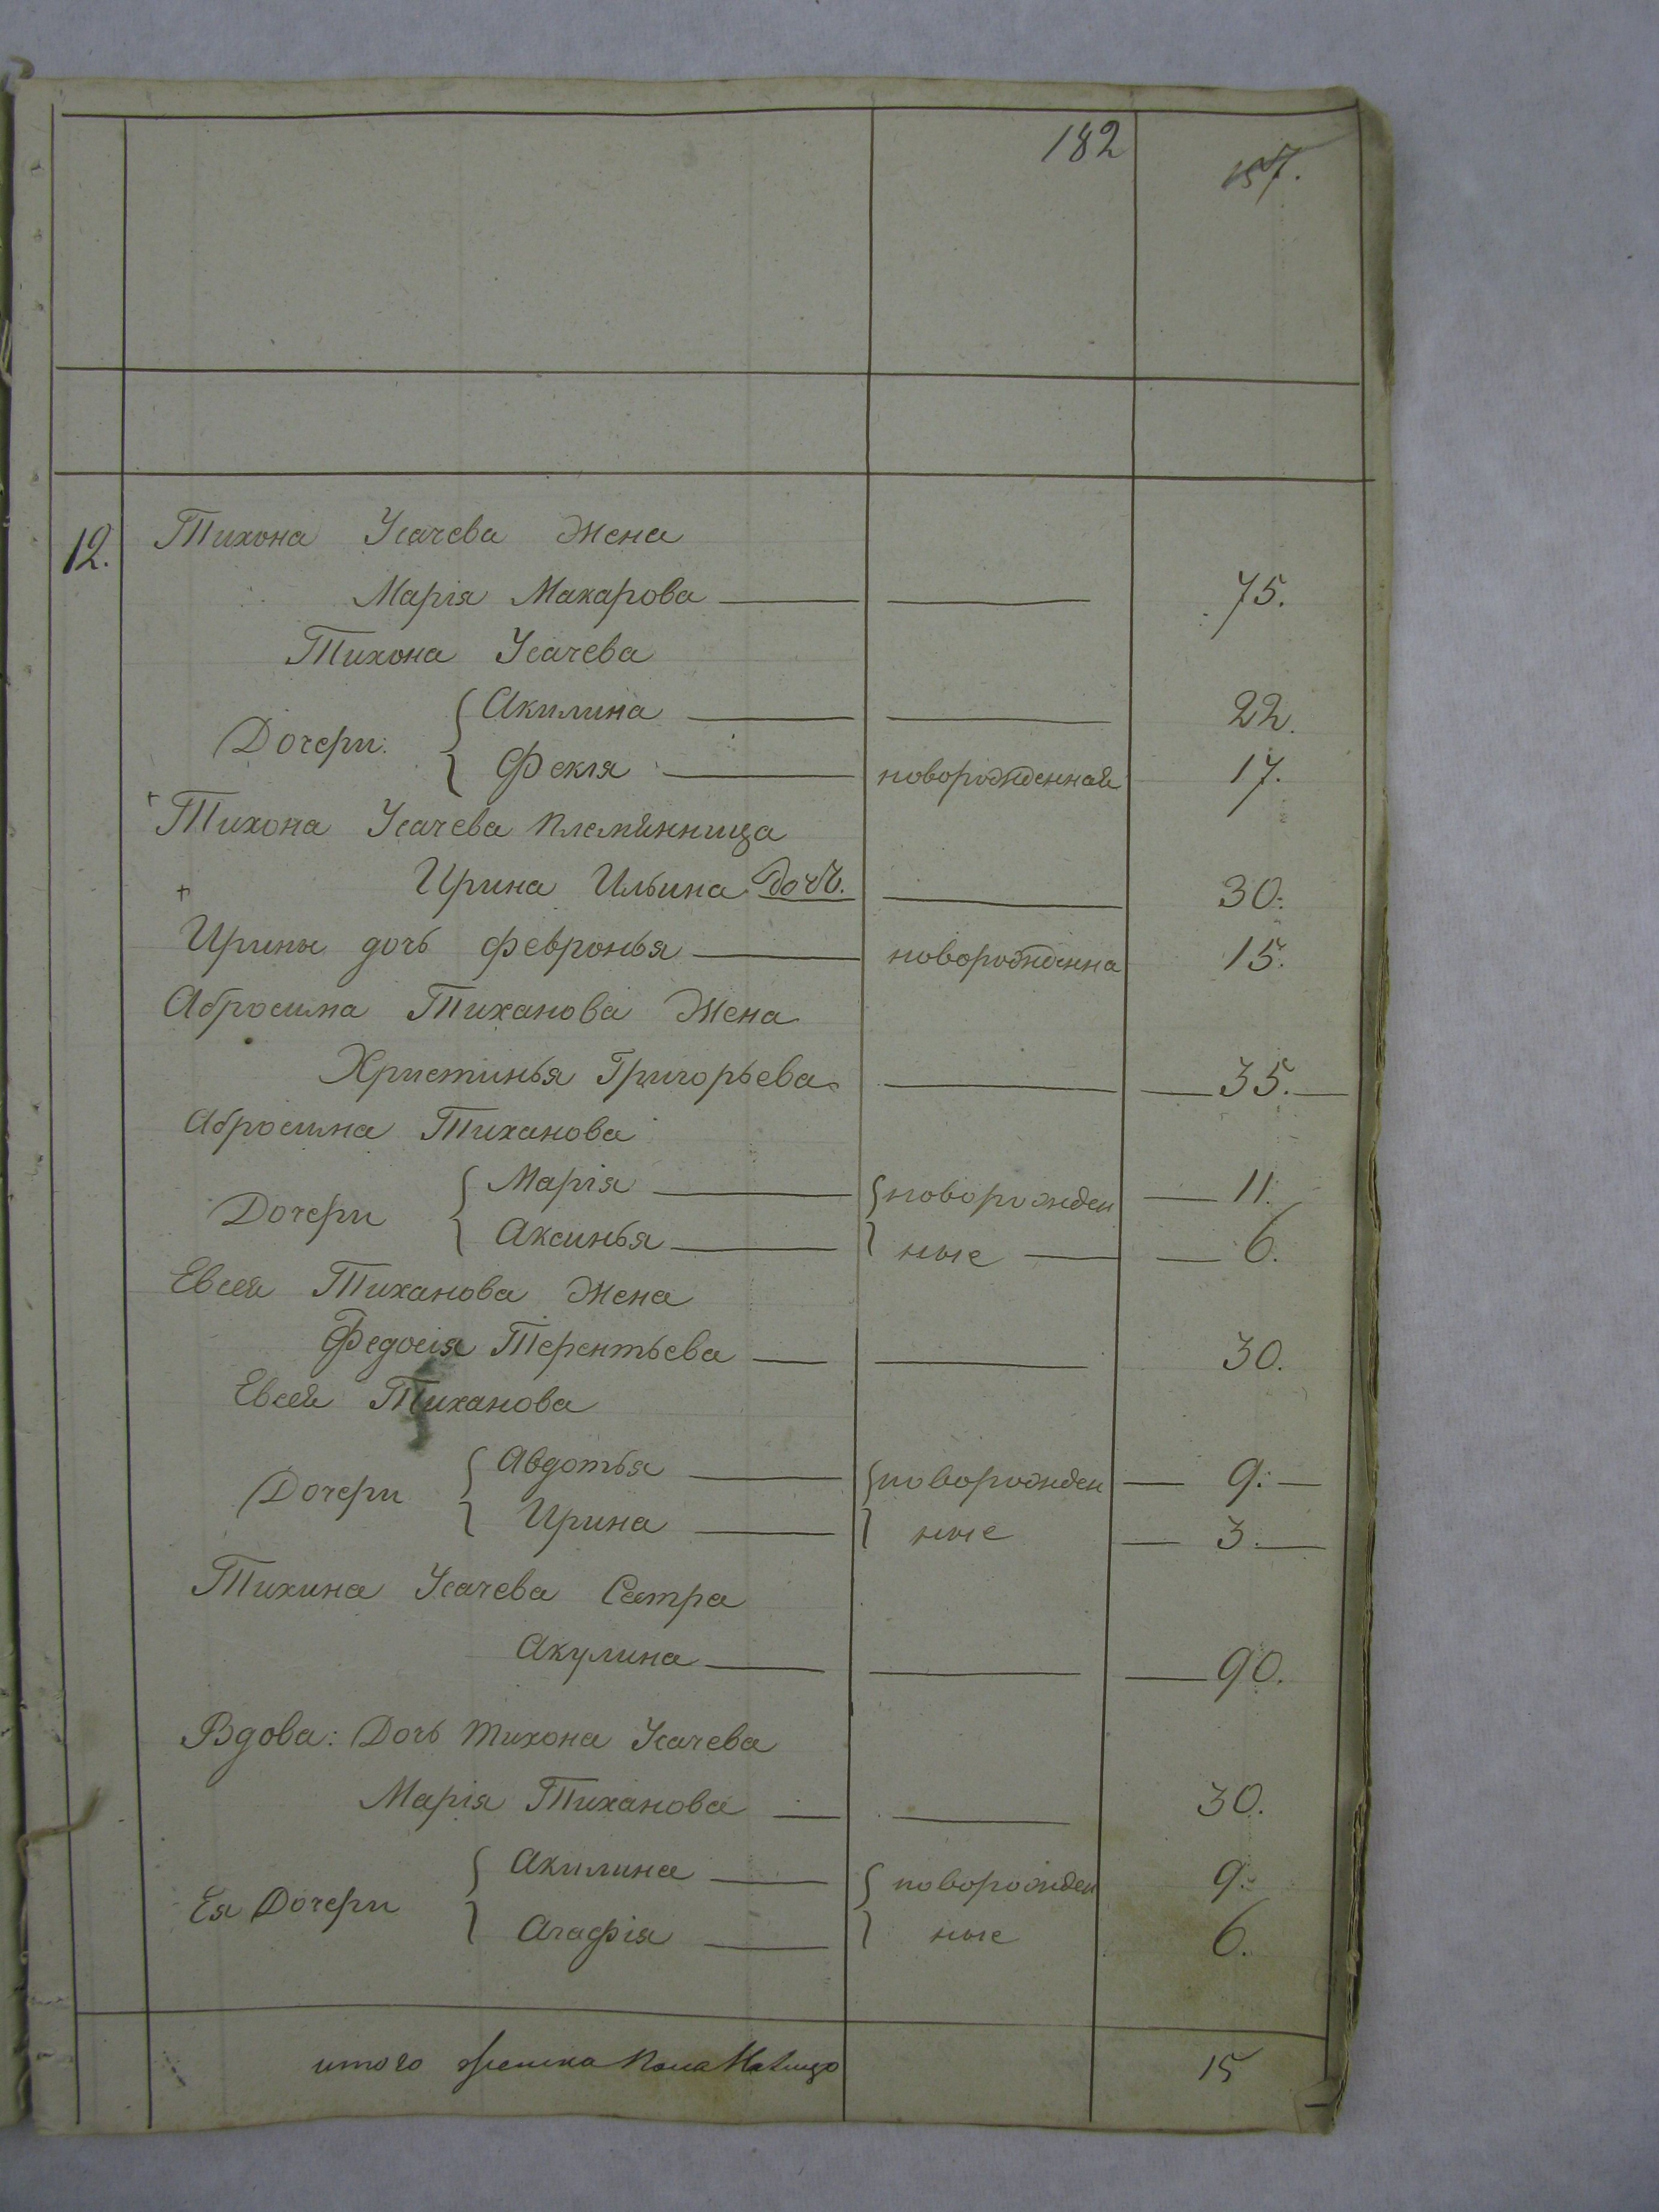 182
157.
12. Тихона Усачева Жена
Марія Макарова 75.
Тихона Усачева
Дочери: { Акилина 22.
Фекла новорожденная 17.
Тихона Усачева племянница
Ирина Ильина дочь. 30.
Ирины дочь Февронья новорожденна 15.
Абросима Тиханова Жена
Христинья Григорьева 35.
Абросима Тиханова
Дочери { Марія { новорожден 11.
Аксинья ные 6.
Евсея Тиханова Жена
Федосія Терентьева 30.
Евсея Тиханова
Дочери { Авдотья { новорожден 9.
Ирина ные 3.
Тихина Усачева Сестра
Акулина 90.
Вдова: Дочь Тихона Усачева
Марія Тиханова 30.
Ея Дочери { Акилина { новорожден 9.
Агафія ные 6.
итого женска пола 15